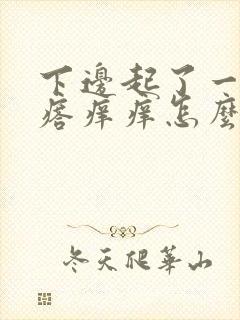 下邊起了一
瘩痒痒怎麼
冬天爬華山